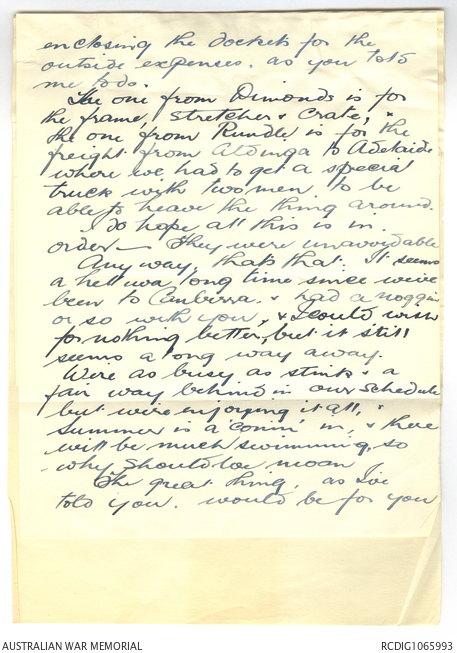 enclosing the dockets for the
outside expenses. as you told
me to do.
The one from Dimonds is for
the frame, stretcher & crate, &
the one from Rundle is for the
freight from Aldinga to Adelaide
where we had to get a special
truck with two men to be
able to heave the thing around.
I do hope all this is in.
order — They were unavoidable
Any way, thats that. It seems
a hell uva long time since we've
been to Canberra. & had a noggin
or so with you, & I could wish
for nothing better, but it still
seems a long way away.
We're as busy as stink & a
fair way behind in our schedule
but we're enjoying it all, &
summer is a 'comin' in, & there
will be much swimming, so
why should we moan
The great thing, as I've
told you. would be for you
AUSTRALIAN WAR MEMORIAL
RCDIG1065993